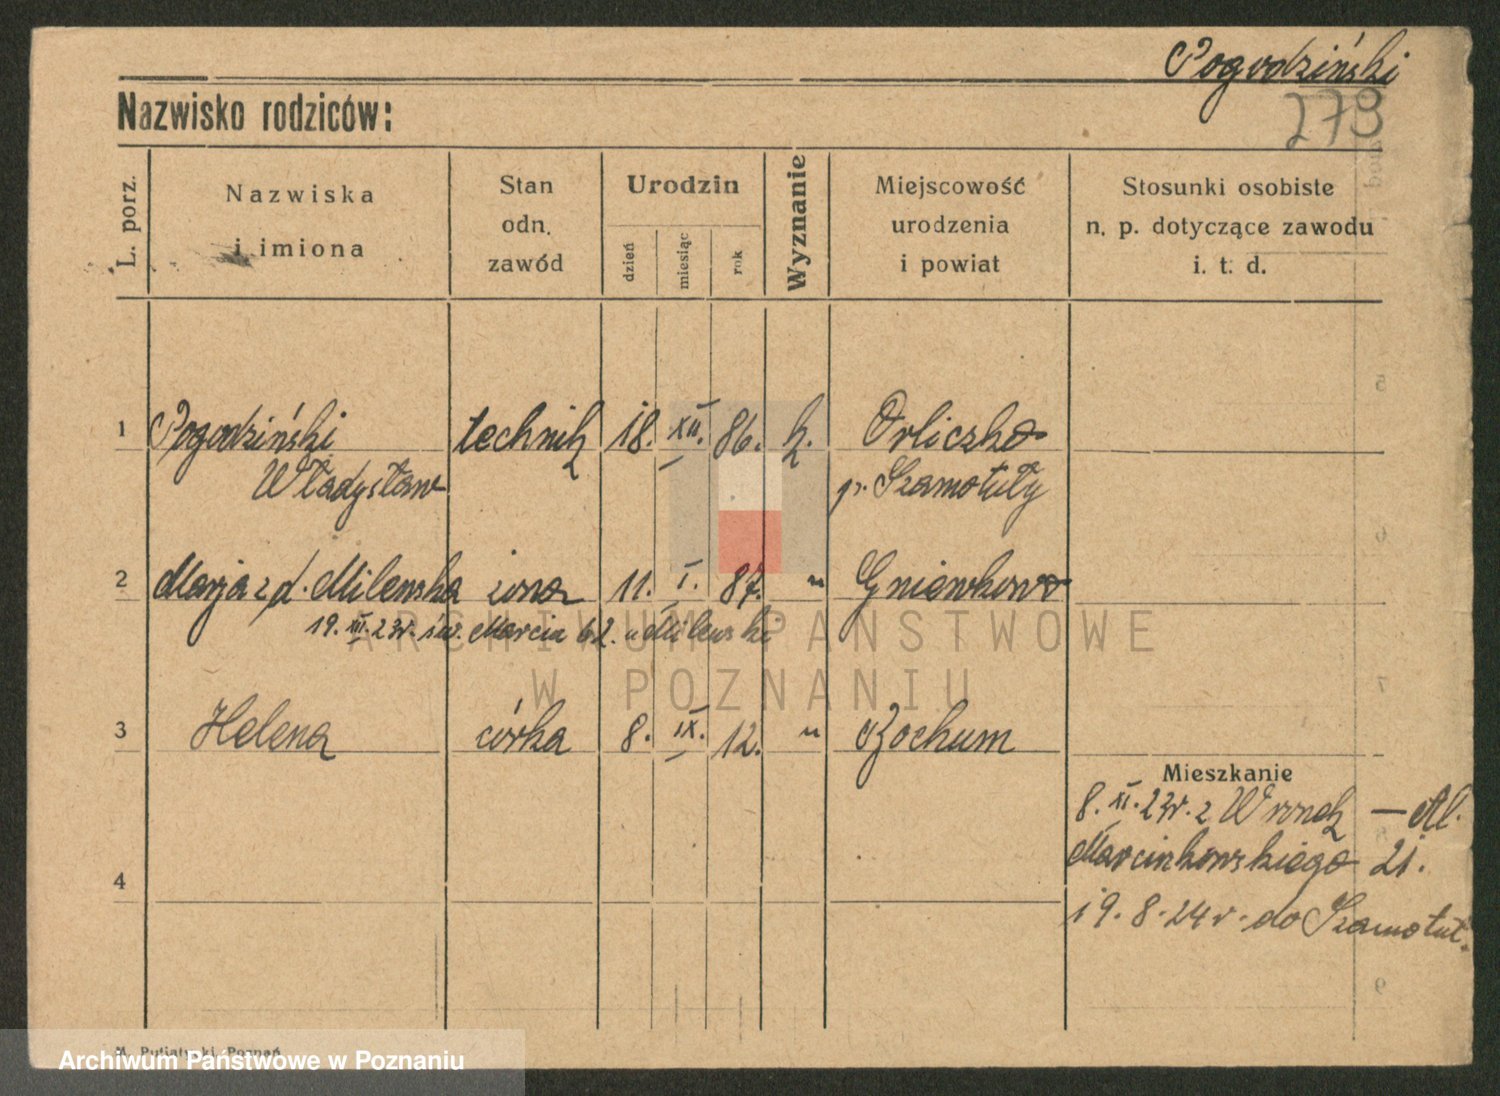 Pogodziński
279
Nazwisko rodziców:
L. porz.
Nazwiska
i imiona
Stan
odn.
zawód
Urodzin
dzień
miesiąc
rok
Wyznanie
Miejscowość
urodzenia
i powiat
Stosunki osobiste
n. p. dotyczące zawodu
i. t. d.
1 Pogodziński technik 18. XII. 86. k. Orliczko
Władysław p. Szamotuły
2 Marja z d. Milewska żona 11. I. 87. " Gniewkowo
19. XII. 23r. św. Marcin 62. u Milewski
ARCHIWUM PAŃSTWOWE
W POZNANIU
3 Helena córka 8. IX. 12. " Bochum
Mieszkanie
8. XI. 23r. z Wronek — Al.
Marcinkowskiego 21.
19. 8. 24 r. do Szamotuł.
4
5
6
7
8
9
M. Putiatycki, Poznań
Archiwum Państwowe w Poznaniu